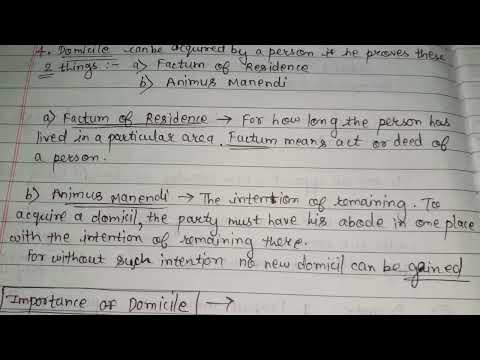 4. Domicile can be acquired by a person if he proves these
2 things :- a) Factum of Residence
b) Animus Manendi
a) Factum of Residence → For how long the person has
lived in a particular area. Factum means act or deed of
a person.
b) Animus Manendi → The intention of remaining. To
acquire a domicil, the party must have his abode in one place
with the intention of remaining there.
for without such intention no new domicil can be gained
Importance of Domicile →